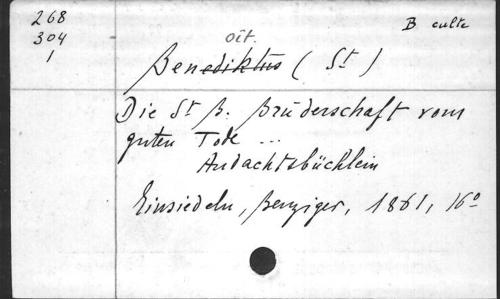 268
304
1
B culte
oît.
Benediktus (St)
Die St B. Brüderschaft vom
guten Tode ...
Andachtsbüchlein
Einsiedeln, Benziger, 1861, 16°